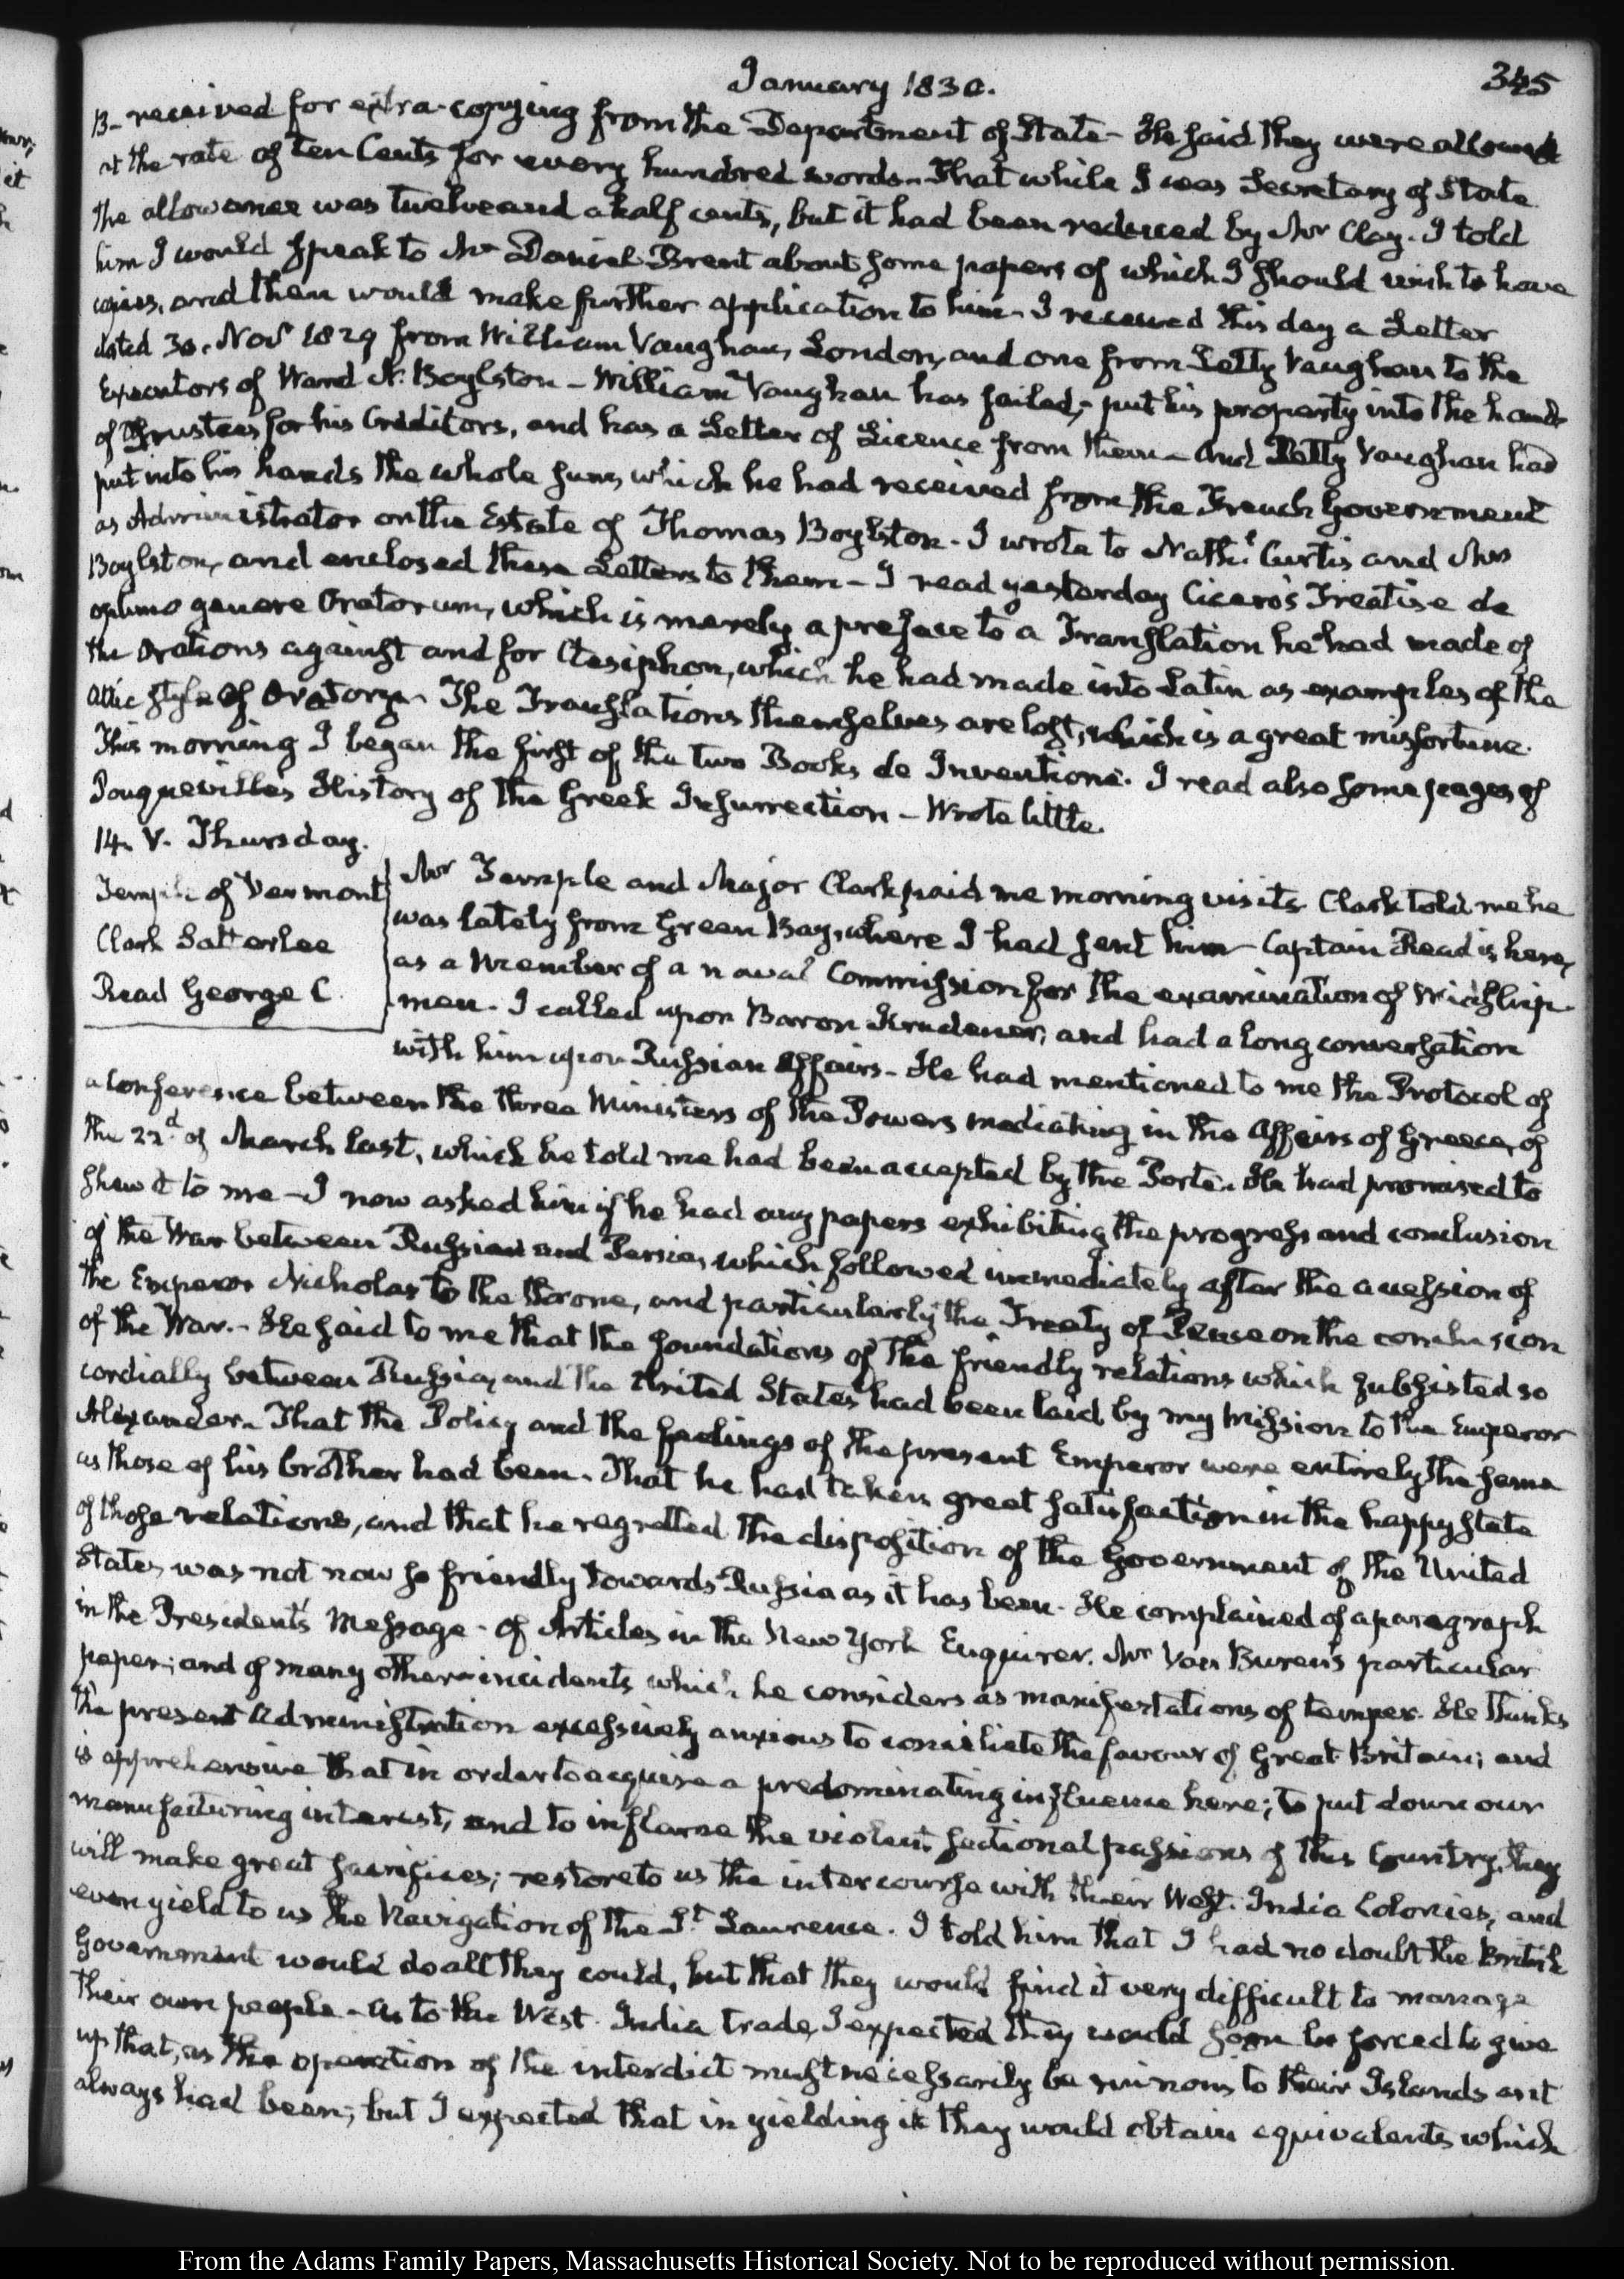 January 1830.
345
B- received for extra-copying from the Department of State- He said they were allowed
at the rate of ten Cents for every hundred words. That while I was Secretary of State
the allowance was twelve and a half cents, but it had been reduced by Mr Clay. I told
him I would speak to Mr Daniel Brent about some papers of which I should wish to have
copies, and then would make further application to him. I received this day a Letter
dated 30. Novr 1829 from William Vaughan, London, and one from Petty Vaughan to the
Executors of Ward N. Boylston - William Vaughan has failed,- put his property into the hands
of Trustees for his Creditors, and has a Letter of Licence from them - And Petty Vaughan had
put into his hands the whole sum, which he had received from the French Government
as Administrator on the Estate of Thomas Boylston. I wrote to Nathl Curtis and Mrs
Boylston, and enclosed these Letters to them - I read yesterday Cicero's Treatise de
optimo genere Oratorum, which is merely a preface to a Translation he had made of
the Orations against and for Ctesiphon, which he had made into Latin as examples of the
attic style of Oratory. The Translations themselves are lost, which is a great misfortune.
This morning I began the first of the two Books de Inventione. I read also some pages of
Pouqueville's History of the Greek Insurrection - Wrote little.
14. V. Thursday.
Temple of Vermont
Clark Satterlee
Read George C.
Mr Temple and Major Clark paid me morning visits. Clark told me he
was lately from Green Bay, where I had sent him - Captain Read is here,
as a member of a naval Commission for the examination of Midship-
men. I called upon Baron Krudener, and had a long conversation
with him upon Russian Affairs - He had mentioned to me the Protocol of
a Conference between the three Ministers of the Powers mediating in the Affairs of Greece, of
the 22d of March last, which he told me had been accepted by the Porte. He had promised to
shew it to me - I now asked him if he had any papers exhibiting the progress and conclusion
of the War between Russia and Persia, which followed immediately after the accession of
the Emperor Nicholas to the throne, and particularly the Treaty of Peace on the conclusion
of the War. - He said to me that the foundations of the friendly relations which subsisted so
cordially between Russia, and the United States had been laid by my Mission to the Emperor
Alexander. That the Policy and the feelings of the present Emperor were entirely the same
as those of his brother had been. That he had taken great satisfaction in the happy state
of those relations, and that he regretted the disposition of the Government of the United
States was not now so friendly towards Russia as it has been. He complained of a paragraph
in the President's Message - of Articles in the New York Enquirer. Mr Van Buren's particular
paper; and of many other incidents which he considers as manifestations of temper. He thinks
the present Administration excessively anxious to conciliate the favour of Great Britain; and
is apprehensive that in order to acquire a predominating influence here; to put down our
manufacturing interest, and to inflame the violent sectional passions of this Country, they
will make great sacrifices; restore to us the intercourse with their West-India Colonies, and
even yield to us the Navigation of the St Laurence. I told him that I had no doubt the British
Government would do all they could, but that they would find it very difficult to manage
their own people - As to the West India trade, I expected they would soon be forced to give
up that, as the operation of the interdict must necessarily be ruinous to their Islands as it
always had been; but I expected that in yielding it they would obtain equivalents which
From the Adams Family Papers, Massachusetts Historical Society. Not to be reproduced without permission.